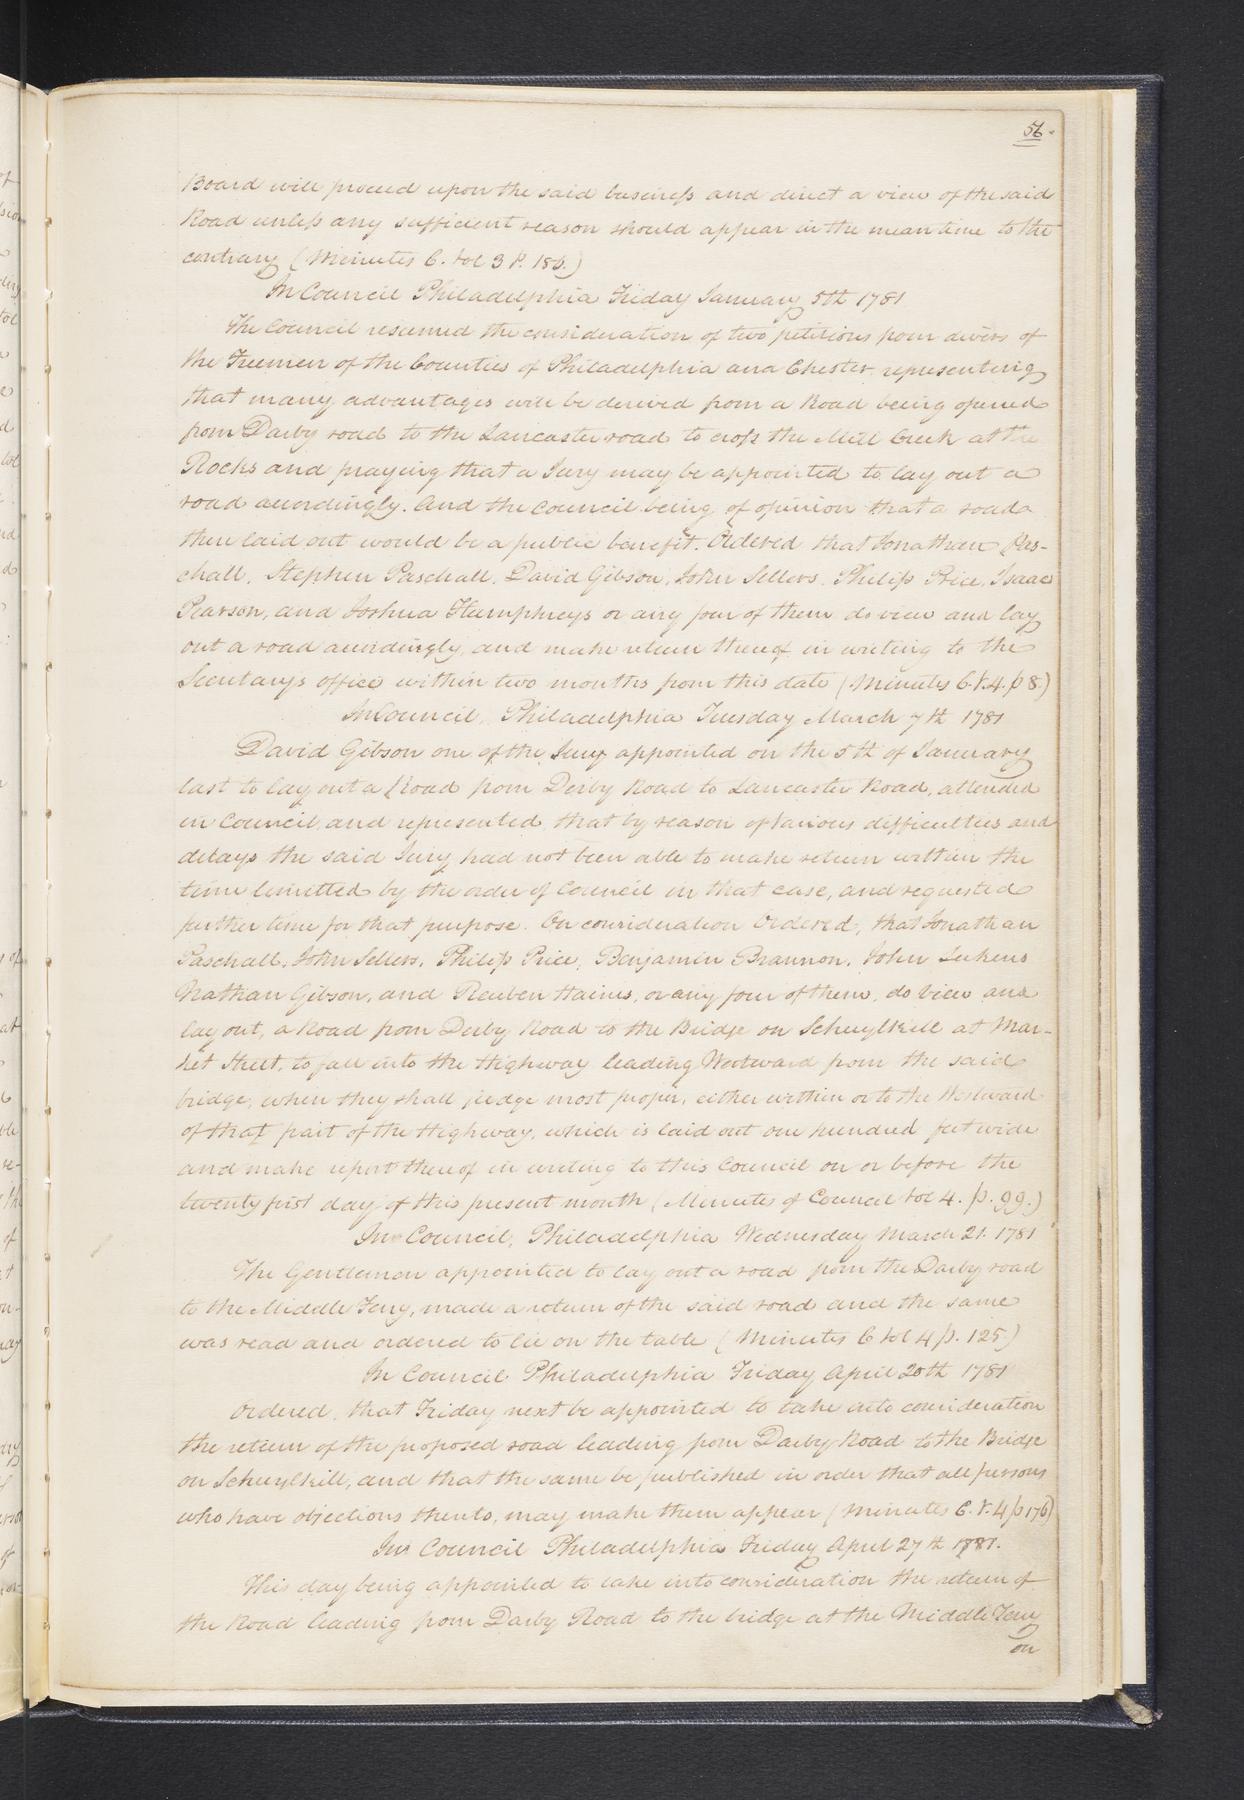 56.
Board will proceed upon the said business and direct a view of the said
Road unless any sufficient reason should appear in the mean time to the
contrary (Minutes C. Vol 3 P. 186.)
In Council Philadelphia Friday January 5th 1781
The Council resumed the consideration of two petitions from divers of
the Freemen of the Counties of Philadelphia and Chester representing
that many advantages will be derived from a Road being opened
from Darby road to the Lancaster road to cross the Mill Creek at the
Rocks and praying that a Jury may be appointed to lay out a
road accordingly. And the Council being of opinion that a road
then laid out would be a public benefit. Ordered that Jonathan Pas-
chall, Stephen Paschall, David Gibson, John Sellers, Philip Price, Isaac
Pearson, and Joshua Humphreys or any four of them do view and lay
out a road accordingly, and make return thereof in writing to the
Secretarys office within two months from this date (Minutes C.V.4.p 8.)
In Council, Philadelphia Tuesday March 7th 1781
David Gibson one of the Jury appointed on the 5th of January
last to lay out a Road from Derby Road to Lancaster Road, attended
in Council, and represented that by reason of various difficulties and
delays the said Jury had not been able to make return within the
time limitted by the order of Council in that case, and requested
further time for that purpose. On consideration Ordered, that Jonathan
Paschall, John Sellers, Philip Price, Benjamin Brannon, John Lukens
Nathan Gibson, and Reuben Haines, or any four of them, do view and
lay out, a Road from Derby Road to the Bridge on Schuylkill at Mar-
ket Street, to fall into the Highway leading Westward from the said
bridge, when they shall judge most proper, either within or to the Westward
of that part of the Highway, which is laid out one hundred feet wide
and make report thereof in writing to this Council on or before the
twenty first day of this present month (Minutes of Council Vol 4. p. 99.)
In Council, Philadelphia Wednesday March 21. 1781
The Gentlemen appointed to lay out a road from the Darby road
to the Middle Ferry, made a return of the said road and the same
was read and ordered to lie on the table (Minutes C Vol 4 p. 125)
In Council Philadelphia Friday April 20th 1781
Ordered, that Friday next be appointed to take into consideration
the return of the proposed road leading from Darby Road to the Bridge
on Schuylkill, and that the same be published in order that all persons
who have objections thereto, may make them appear (Minutes C.V.4 p 176)
In Council Philadelphia Friday April 27th 1781.
This day being appointed to take into consideration the return of
the Road leading from Darby Road to the bridge at the Middle Ferry
on